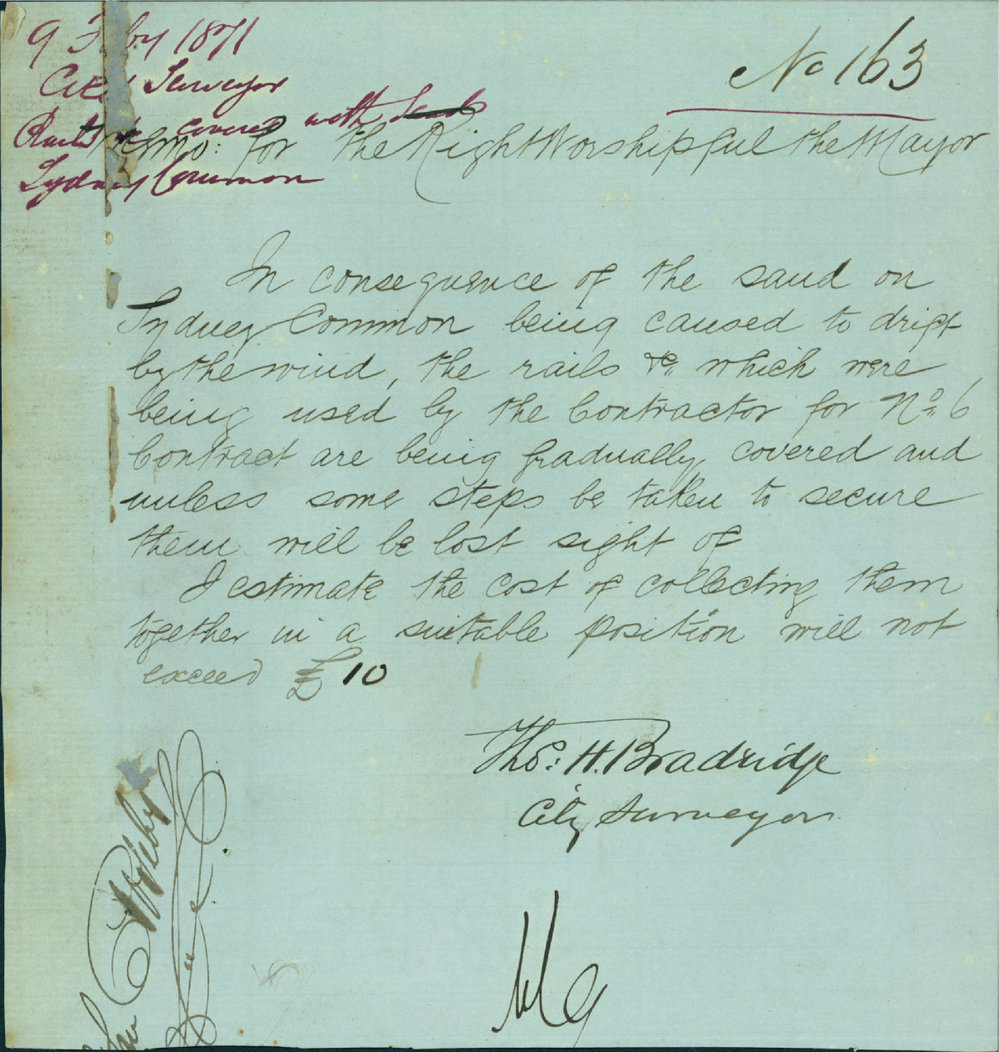 9 Feby 1871
City Surveyor
Rails covered with Sand
Sydney Common
No 163
Memo: for the Right Worshipful the Mayor
In consequence of the sand on
Sydney Common being caused to drift
by the wind, the rails &c. which were
being used by the Contractor for No. 6
Contract are being gradually covered and
unless some steps be taken to secure
them will be lost sight of
I estimate the cost of collecting them
together in a suitable position will not
exceed £10
Thos: H. Bradridge
City Surveyor